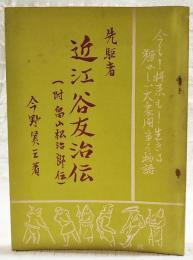 今も、将来も、生きる
輝かしい大衆闘争の物語
先駆者
近江谷友治伝
(附 畠山松治郎伝)
今野賢三著